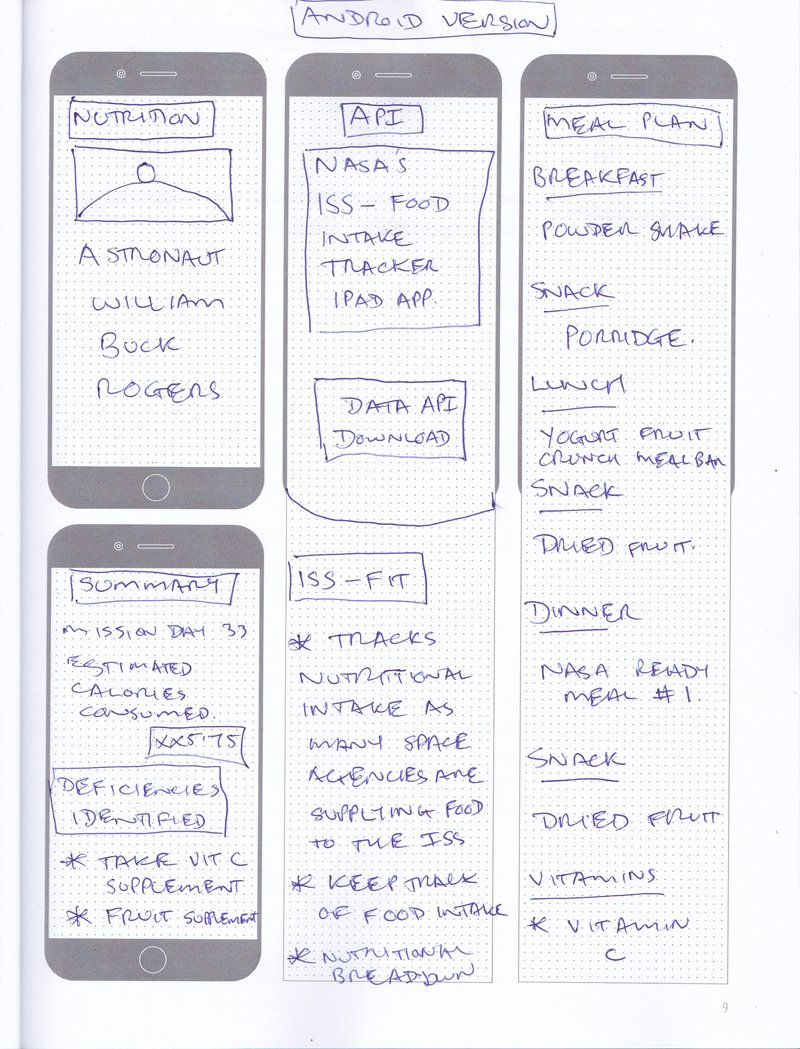 ANDROID VERSION
NUTRITION
ASTRONAUT
WILLIAM
BUCK
ROGERS
SUMMARY
MISSION DAY 33
ESTIMATED
CALORIES
CONSUMED.
XX5.75
DEFICIENCIES
IDENTIFIED
* TAKE VIT C
SUPPLEMENT
* FRUIT SUPPLEMENT
API
NASA'S
ISS - FOOD
INTAKE
TRACKER
IPAD APP.
DATA API
DOWNLOAD
ISS - FIT
* TRACKS
NUTRITIONAL
INTAKE AS
MANY SPACE
AGENCIES ARE
SUPPLYING FOOD
TO THE ISS
* KEEP TRACK
OF FOOD INTAKE
* NUTRITIONAL
BREADOWN
MEAL PLAN
BREAKFAST
POWDER SHAKE
SNACK
PORRIDGE.
LUNCH
YOGURT FRUIT
CRUNCH MEAL BAR
SNACK
DRIED FRUIT.
DINNER
NASA READY
MEAL #1.
SNACK
DRIED FRUIT
VITAMINS
* VITAMIN
C
9